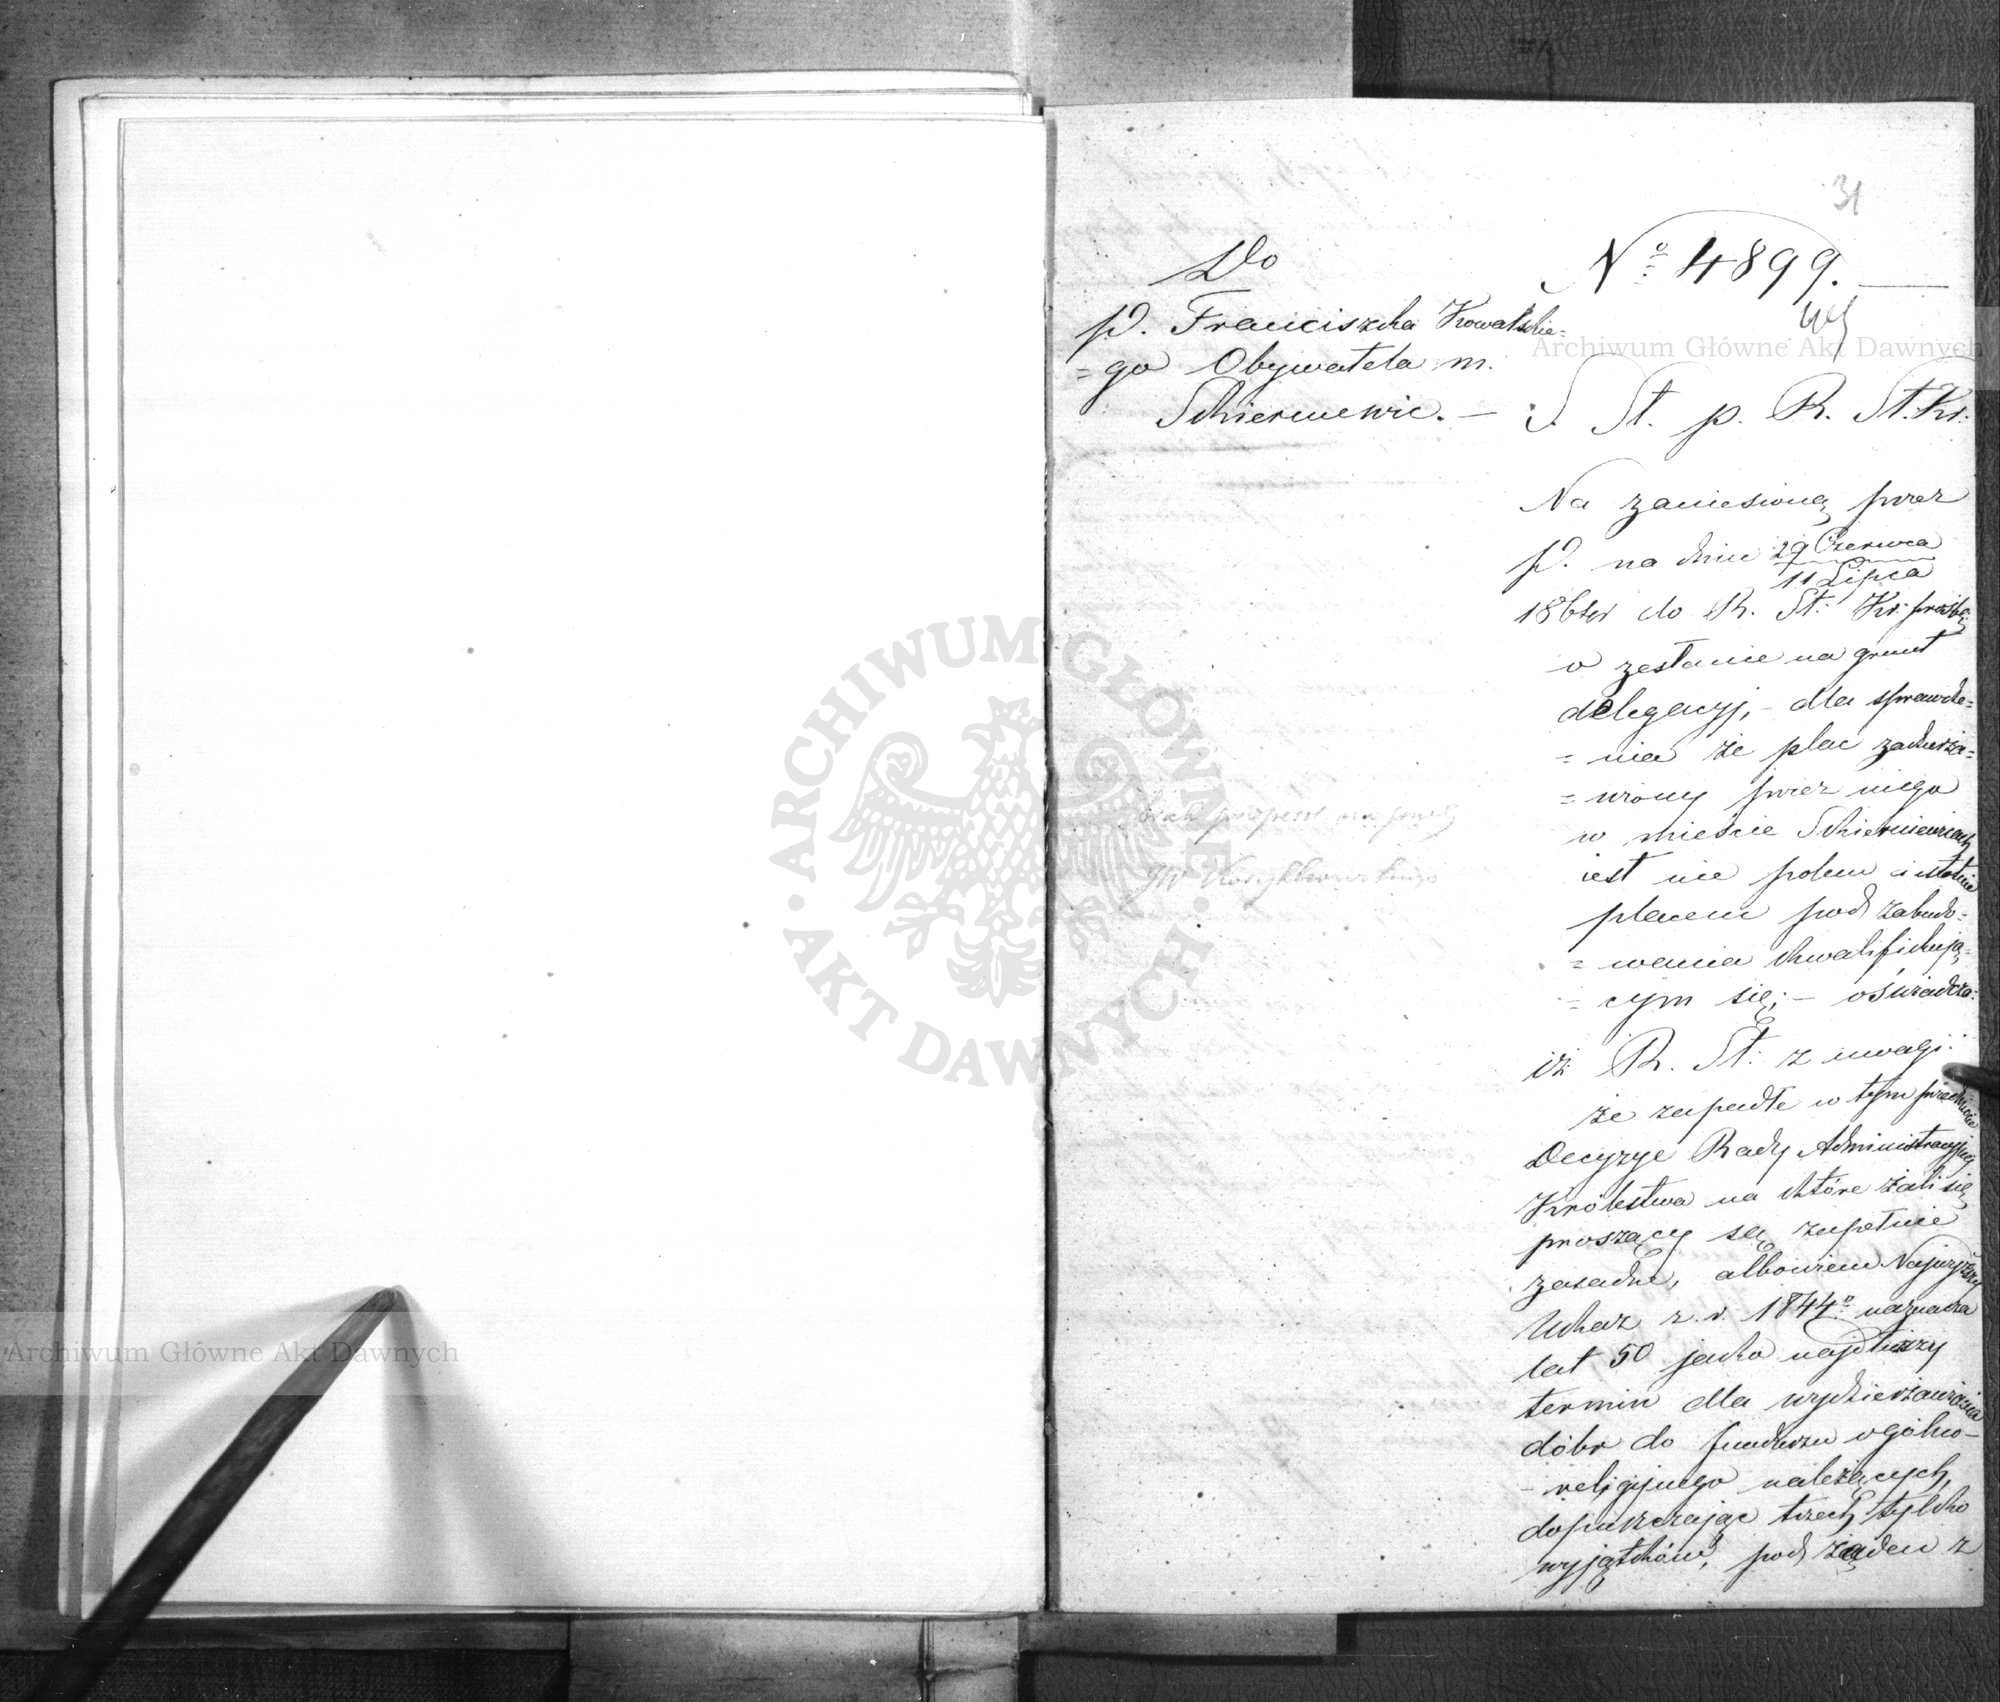 31
Do
P. Franciszka Kowalskie=
=go Obywatela m.
Skierniewic. —
No 4899.
S. St. p. R. St. Kr.
Na zaniesioną przez
P. na dniu 29 Czerwca
11 Lipca
186 do R. St: Kr: prośbę
o zesłanie na grunt
delegacyj, - dla sprawdze=
=nia że plac zadzierża=
=wiony przez niego
w mieście Skierniewicach
jest nie polem a istotnie
placem pod zabudo=
=wania kwalifikują=
=cym się; - oświadcza:
iż R. St: z uwagi:
że zapadłe w tym przedmiocie
Decyzye Rady Administracyjnej
Królestwa na które żali się
proszący są zupełnie
zasadne, albowiem Najwyższy
Ukaz z r. 1844o naznacza
lat 50 jako najdłuższy
termin dla wydzierżawienia
dóbr do funduszu ogólno-
-religijnego należących,
dopuszczając trzech tylko
wyjątków, pod żaden z
brak przepisu na
JW
Archiwum Główne Akt Dawnych
Archiwum Główne Akt Dawnych
ARCHIWUM GŁÓWNE
AKT DAWNYCH